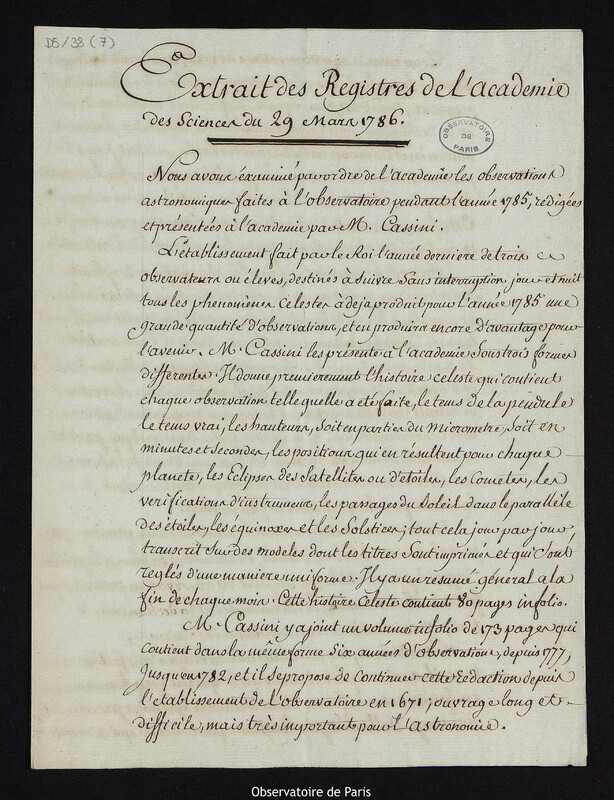 D5/38 (7)
Extrait des Registres de l'academie
des Sciences du 29 Mars 1786.
OBSERVATOIRE
DE
PARIS
Nous avons éxaminé par ordre de l'academie les observations
astronomiques faites à l'observatoire pendant l'année 1785, redigées
et présentées à l'academie par M. Cassini.
L'établissement fait par le Roi l'année derniere de trois
observateurs ou éleves, destinés à suivre sans interruption jour et nuit
tous les phenomenes celestes à deja produit pour l'année 1785 une
grande quantité d'observations, et en produira encore d'avantage pour
l'avenir. M. Cassini les présente à l'academie sous trois formes
differentes. Il donne premierement l'histoire celeste qui contient
chaque observation telle quelle a eté faite, le tems de la pendule
le tems vrai, les hauteurs, soit en parties du Micrometre, soit en
minutes et secondes, les positions qui en résultent pour chaque
planete, les Eclipses des Satellites ou d'étoiles, les Cometes, les
verifications d'instrumens, les passages du Soleil dans le parallèle
des étoiles, les équinoxes et les Solstices; tout cela jour par jour
transcrit sur des modeles dont les titres sont imprimés et qui sont
reglés d'une maniere uniforme. Il y a un resumé général a la
fin de chaque mois. Cette histoire Celeste contient 80 pages infolio.
M. Cassini y a joint un volume infolio de 173 pages qui
contient dans la même forme six années d'observations, depuis 1777,
Jusqu'en 1782, et il se propose de continuer cette redaction depuis
l'établissement de l'observatoire en 1671; ouvrage long et
difficile, mais très important pour l'astronomie.
Observatoire de Paris